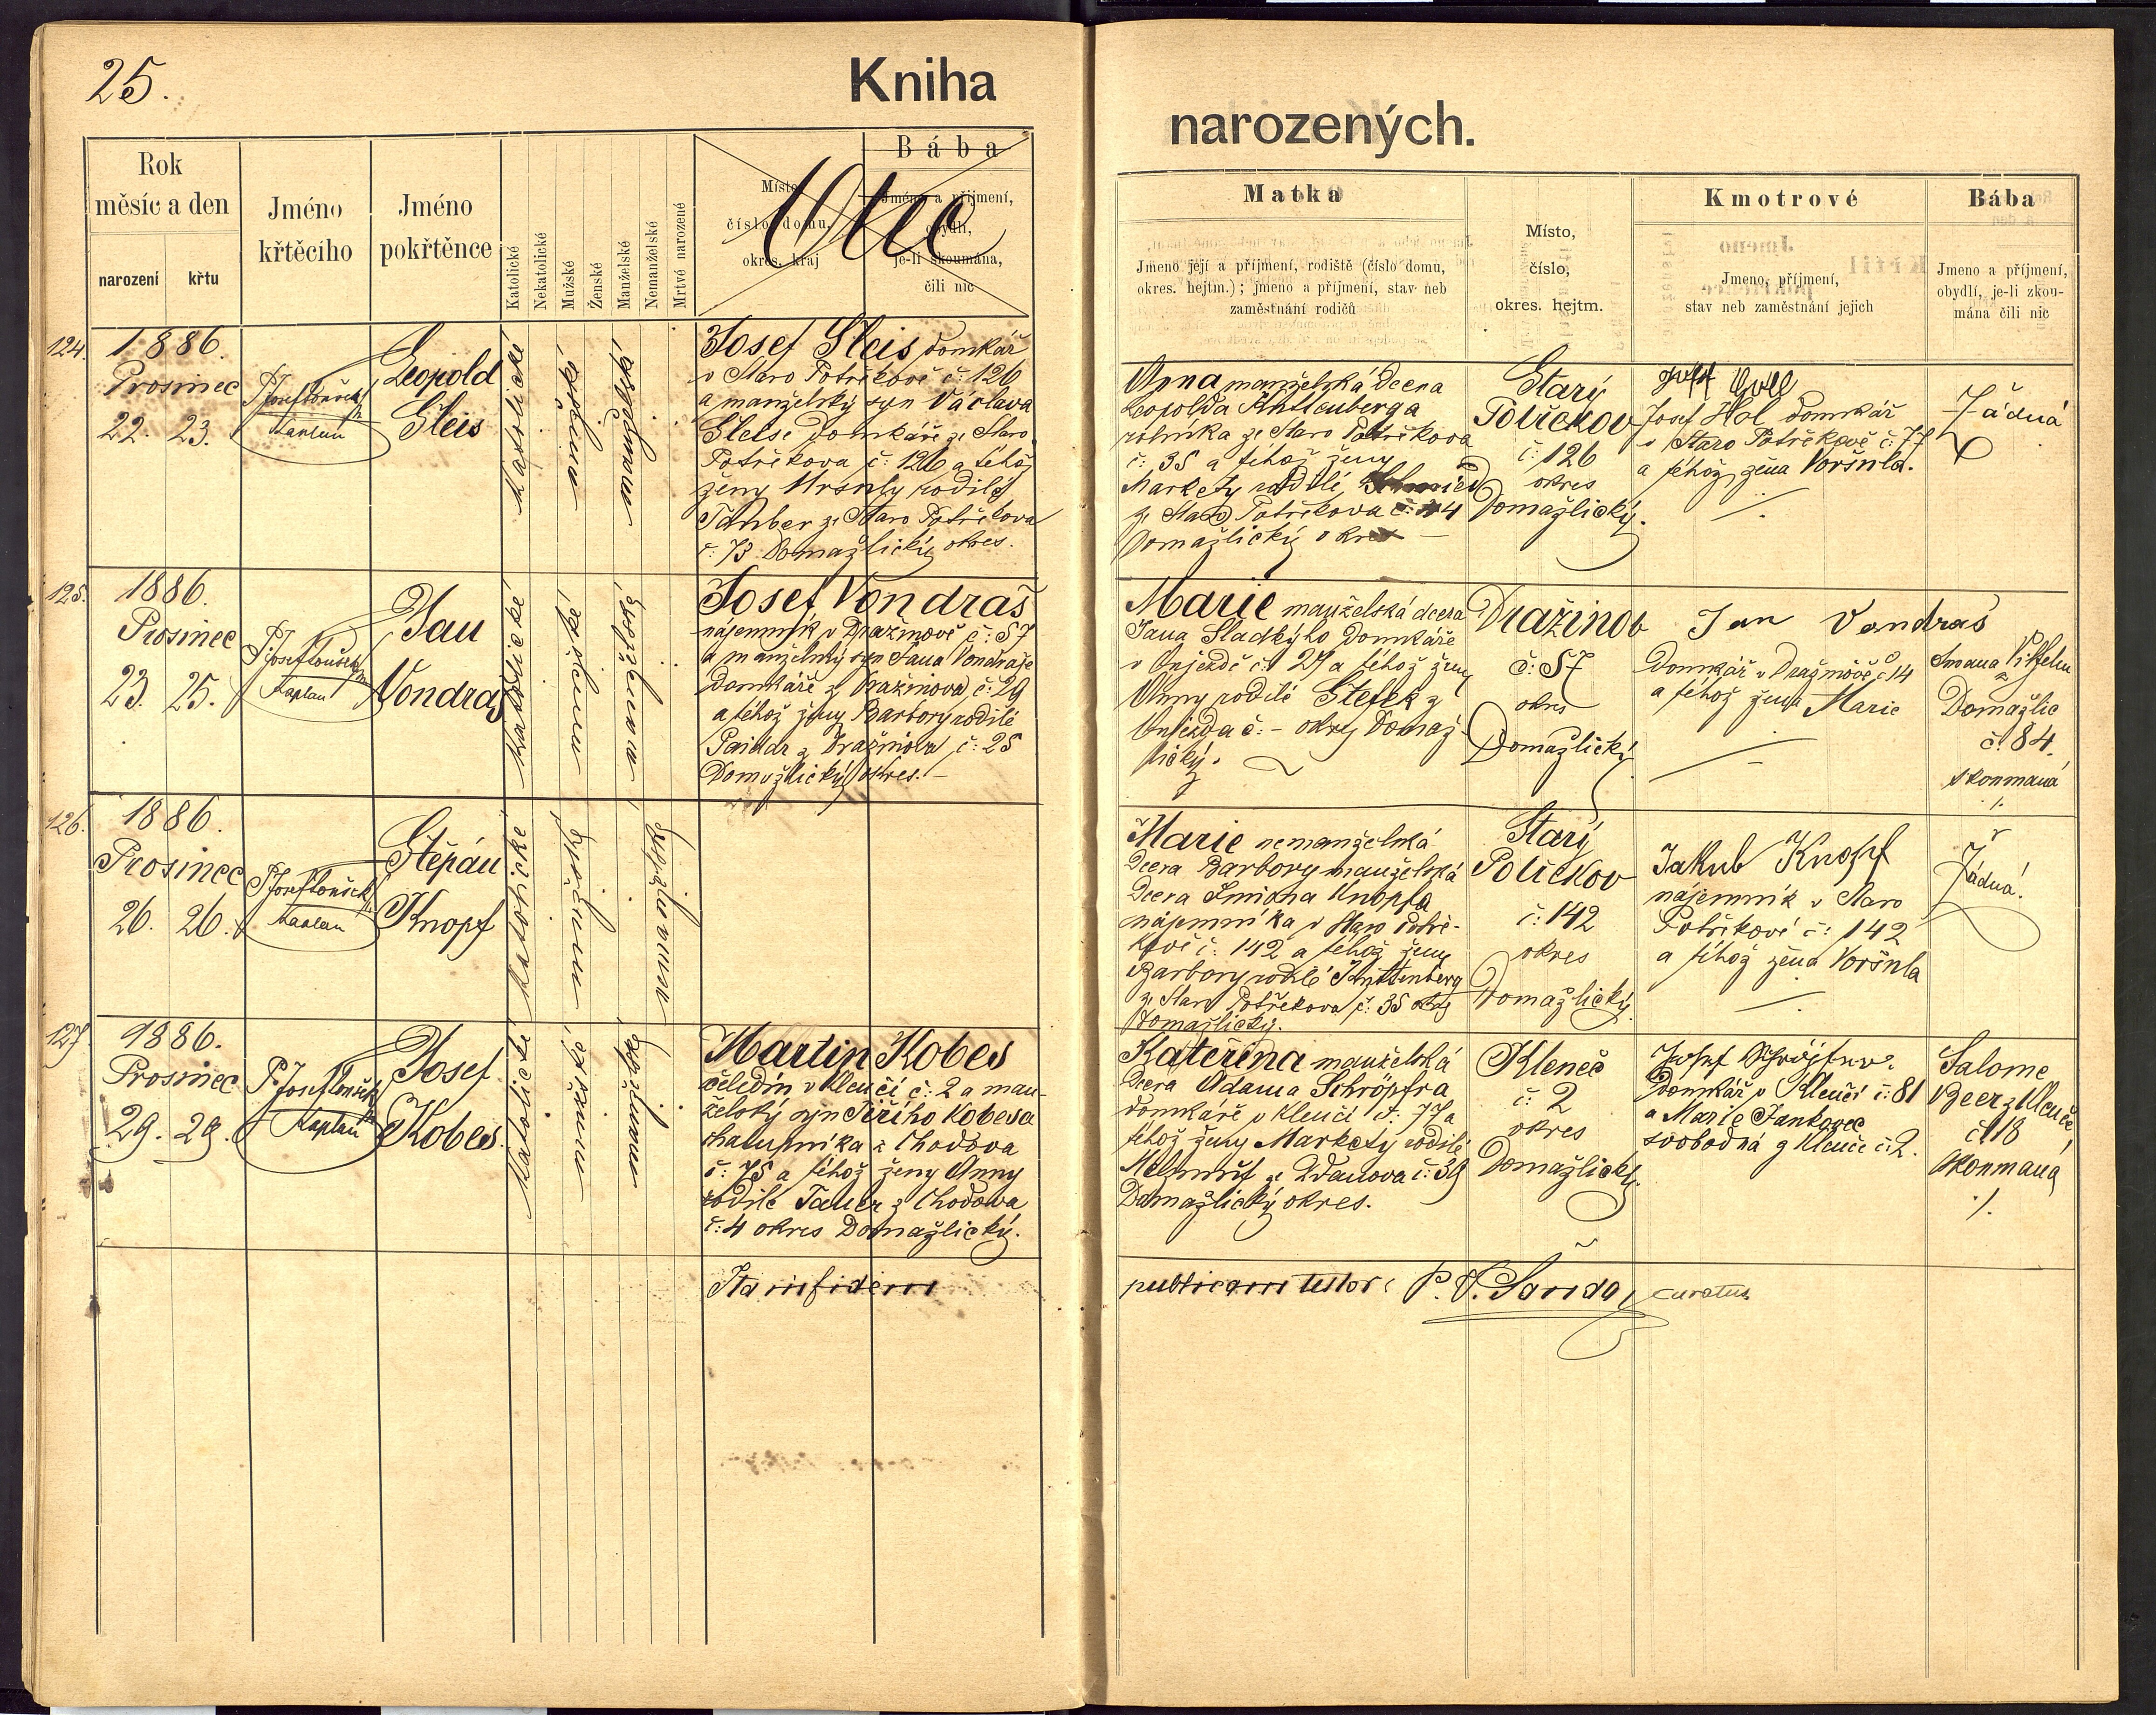 25.
Kniha
narozených.
Rok
měsíc a den
narození
křtu
Jméno
křtěcího
Jméno
pokřtěnce
Katolické
Nekatolické
Mužské
Ženské
Manželské
Nemanželské
Mrtvé narozené
Místo,
číslo domu,
okres, kraj
Bába
Jméno a příjmení,
obydlí,
je-li skoumána,
čili nic
Otec
Matka
Jmeno její a příjmení, rodiště (číslo domu,
okres. hejtm.); jmeno a příjmení, stav neb
zaměstnání rodičů
Místo,
číslo,
okres. hejtm.
Kmotrové
Jmeno, příjmení,
stav neb zaměstnání jejich
Bába
Jmeno a příjmení,
obydlí, je-li zkou-
mána čili nic
124.
1886.
Prosinec
22. 23.
P. Josef
Kaplan
Leopold
Gleis
Katolické
Josef Gleis domkář
v Staro Potřékově č: 126
a manželský syn Václava
Gleise domkáře ze Staro
Potřékova č: 126 a téhož
ženy Ursuly rodilé
Tauber ze Staro Potřékova
č: 73 Domažlický okres.
Anna manželská dcera
Leopolda Knittenberga
rolníka ze Staro Potřékova
č: 35 a téhož ženy
Markety rodilé
ze Staro Potřékova č:
Domažlický okres
Starý
Potřékov
č: 126
okres
Domažlický.
Josef Hol domkář
v Staro Potřékově č: 77
a téhož žena Voršula.
Žádná
125.
1886.
Prosinec
23. 25.
P. Josef
Kaplan
Jan
Vondraš
Katolické
Josef Vondraš
nájemník v Dražinově č: 57
a manželský syn Jana Vondraše
domkáře z Dražinova č: 29
a téhož ženy Barbory rodilé
z Dražinova č: 25
Domažlický okres. –
Marie manželská dcera
Jana Sladkýho domkáře
v Aujezdě č: 27 a téhož ženy
Anny rodilé Stefek z
Aujezda č: – okres Domaž-
lický.
Dražinov
č: 57
okres
Domažlický
Jan Vondraš
Domkář v Dražinově č 14
a téhož žena Marie
Domažlic
č. 84.
skoumaná
126.
1886.
Prosinec
26. 26.
P. Josef
Kaplan
Štěpán
Knopf
Katolické
Marie nemanželská
Dcera Barbory manželská
Dcera Simona Knopfa
nájemníka v Staro Potře-
kově č: 142 a téhož ženy
Barbory rodilé Knittenberg
ze Staro Potřékova č: 35 okres
Domažlický.
Starý
Potřékov
č: 142
okres
Domažlický.
Jakub Knopf
nájemník v Staro
Potřékově č: 142
a téhož žena Voršula
Žádná.
127.
1886.
Prosinec
29. 29.
P. Josef
Kaplan
Josef
Kobes.
Katolické
Martin Kobes
čeledín v Klenčí č: 2 a man-
želský syn Jiřího Kobesa
chalupníka z Chodova
č: 75 a téhož ženy Anny
rodilé Tauer z Chodova
č: 4 okres Domažlický.
Kateřina manželská
Dcera Adama Schröpfra
domkáře v Klenčí č: 77 a
téhož ženy Markéty rodilé
ze Ždanova č: 39
Domažlický okres.
Kleneč
č: 2
okres
Domažlický.
Josef
Domkář v Klenčí č: 81
a Marie Jankovec
svobodná z Klenče č: 2.
Salome
Beer z Klenče
č 18
skoumaná
Ita in fidem
publicam testor: P. V. Šanda, curatus